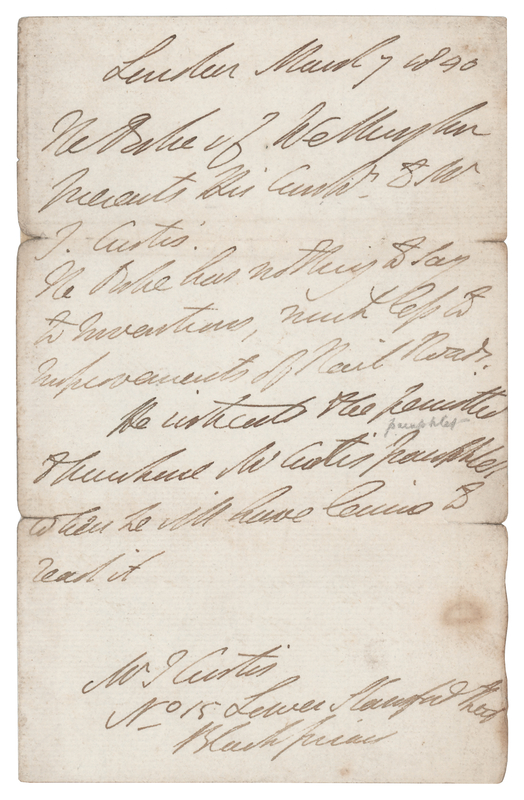 London March 7 1840
The Duke of Wellington
presents His Compts to Mr
J. Curtis.
The Duke has nothing to say
to Inventions, much less to
improvements of Rail Roads.
He entreats to be permitted
pamphlet
to Mr Curtis's pamphlet
when he will have leisure to
read it
Mr J Curtis
No 15 Lower Stamford Street
Blackfriars